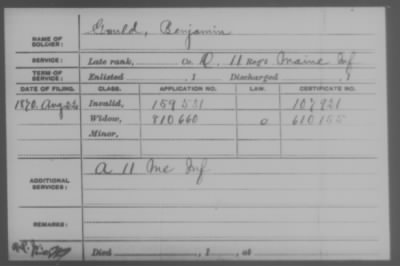 NAME OF SOLDIER: Gould, Benjamin
SERVICE: Late rank, Co. D, 11 Reg't Maine Inf
TERM OF SERVICE: Enlisted , 1 Discharged , 1
DATE OF FILING. CLASS. APPLICATION NO. LAW. CERTIFICATE NO.
1870. Aug 22 Invalid, 159 521 107 921
Widow, 810 660 610 155
Minor,
ADDITIONAL SERVICES: A 11 Me Inf
REMARKS:
Died , 1 , at